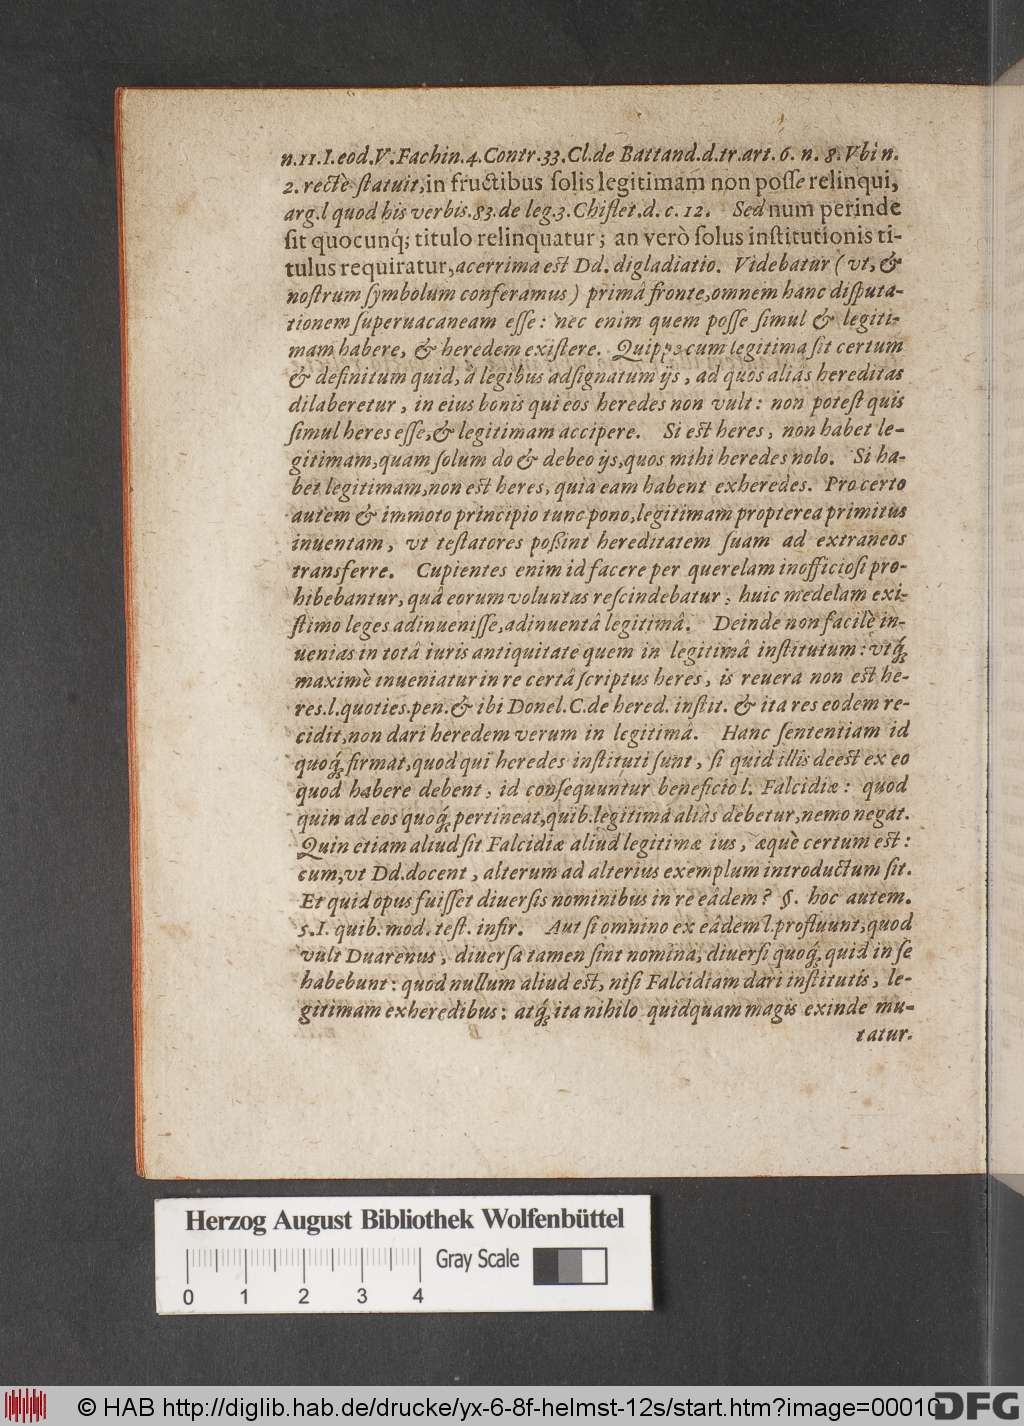 n.11.I.eod.V.Fachin.4.Contr.33.Cl.de Battand.d.tr.art.6. n. 8. Vbi n.
2. rectè ſtatuit,in fructibus ſolis legitimam non poſſe relinqui,
arg.l quod his verbis.83.de leg.3.Chiflet.d. c. 12. Sed num perinde
ſit quocunq́; titulo relinquatur; an verò ſolus inſtitutionis ti-
tulus requiratur,acerrima est Dd. digladiatio. Videbatur (vt, &
noſtrum ſymbolum conferamus) primâ fronte,omnem hanc diſputa-
tionem ſuperuacaneam eſſe: nec enim quem poſſe ſimul & legiti-
mam habere, & heredem exiſtere. Quippe cum legitima ſit certum
& definitum quid, à legibus adſignatum ijs, ad quos aliàs hereditas
dilaberetur, in eius bonis qui eos heredes non vult: non poteſt quis
ſimul heres eſſe,& legitimam accipere. Si est heres, non habet le-
gitimam,quam ſolum do & debeo ijs,quos mihi heredes nolo. Si ha-
bet legitimam,non est heres, quia eam habent exheredes. Pro certo
autem & immoto principio tunc pono,legitimam propterea primitus
inuentam, vt teſtatores poßint hereditatem ſuam ad extraneos
transferre. Cupientes enim id facere per querelam inofficioſi pro-
hibebantur, quâ eorum voluntas reſcindebatur; huic medelam exi-
ſtimo leges adinueniſſe,adinuentâ legitimâ. Deinde non facilè in-
uenias in totâ iuris antiquitate quem in legitimâ inſtitutum: vtq́;
maximè inueniatur in re certâ ſcriptus heres, is reuera non est he-
res.l.quoties.pen.& ibi Donel.C.de hered. inſtit. & ita res eodem re-
cidit,non dari heredem verum in legitimâ. Hanc ſententiam id
quoq́; firmat,quod qui heredes inſtituti ſunt, ſi quid illis deest ex eo
quod habere debent, id conſequuntur beneficio l. Falcidiæ: quod
quin ad eos quoq́; pertineat,quib.legitima aliàs debetur,nemo negat.
Quin etiam aliud ſit Falcidiæ aliud legitimæ ius, æquè certum est:
cum,vt Dd.docent, alterum ad alterius exemplum introductum ſit.
Et quid opus fuiſſet diuerſis nominibus in re eâdem? §. hoc autem.
5.I. quib. mod. teſt. infir. Aut ſi omnino ex eâdem l.profluunt,quod
vult Duarenus, diuerſa tamen ſint nomina, diuerſi quoq́; quid in ſe
habebunt: quod nullum aliud est, niſi Falcidiam dari inſtitutis, le-
gitimam exheredibus: atq́; ita nihilo quidquam magis exinde mu-
tatur.
Herzog August Bibliothek Wolfenbüttel
Gray Scale
0 1 2 3 4
© HAB http://diglib.hab.de/drucke/yx-6-8f-helmst-12s/start.htm?image=00010
DFG